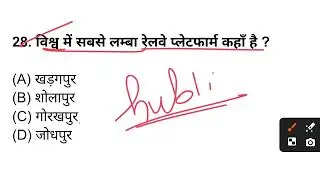 28. विश्व में सबसे लम्बा रेलवे प्लेटफार्म कहाँ है ?
(A) खड़गपुर
(B) शोलापुर
(C) गोरखपुर
(D) जोधपुर
hubli